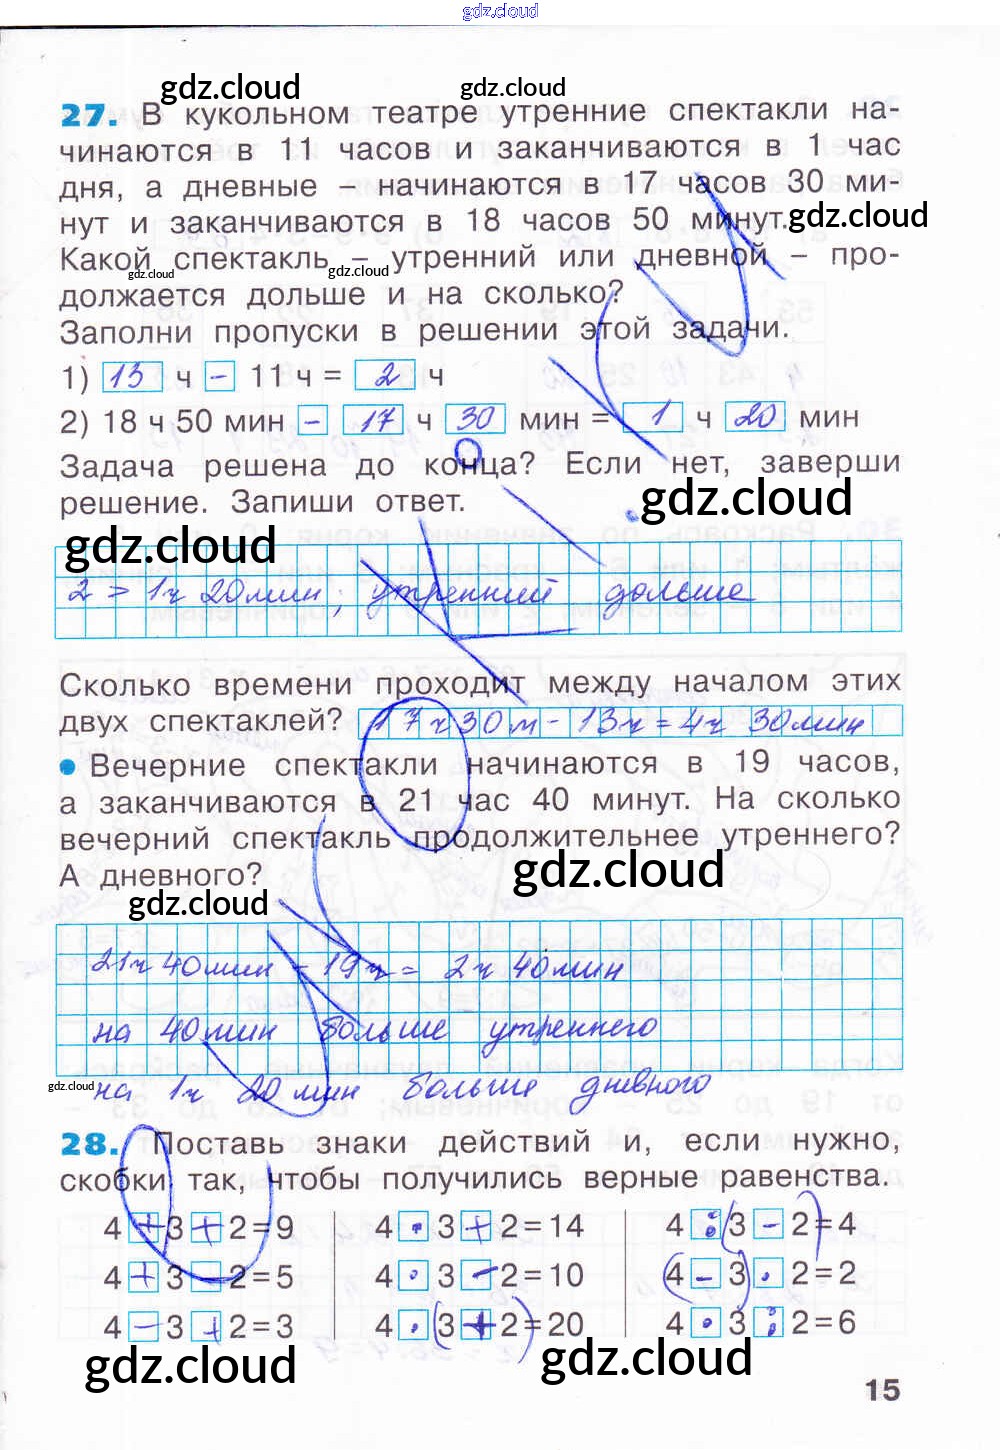 gdz.cloud
gdz.cloud gdz.cloud
27. В кукольном театре утренние спектакли на-
чинаются в 11 часов и заканчиваются в 1 час
дня, а дневные – начинаются в 17 часов 30 ми-
нут и заканчиваются в 18 часов 50 минут.
gdz.cloud
Какой спектакль – утренний или дневной – про-
gdz.cloud gdz.cloud
должается дольше и на сколько?
Заполни пропуски в решении этой задачи.
1) 13 ч - 11 ч = 2 ч
2) 18 ч 50 мин - 17 ч 30 мин = 1 ч 20 мин
Задача решена до конца? Если нет, заверши
решение. Запиши ответ.
gdz.cloud
gdz.cloud
2 > 1ч 20мин; утренний дольше
Сколько времени проходит между началом этих
двух спектаклей? 17ч 30м - 13ч = 4ч 30мин
• Вечерние спектакли начинаются в 19 часов,
а заканчиваются в 21 час 40 минут. На сколько
вечерний спектакль продолжительнее утреннего?
А дневного?
gdz.cloud
gdz.cloud
21ч 40мин - 19ч = 2ч 40мин
на 40мин больше утреннего
gdz.cloud
на 1ч 20мин больше дневного
28. Поставь знаки действий и, если нужно,
скобки так, чтобы получились верные равенства.
4 + 3 + 2 = 9 4 · 3 + 2 = 14 4 : (3 - 2) = 4
4 + 3 - 2 = 5 4 · 3 - 2 = 10 (4 - 3) · 2 = 2
4 - 3 + 2 = 3 4 · (3 + 2) = 20 4 · 3 : 2 = 6
gdz.cloud gdz.cloud
15